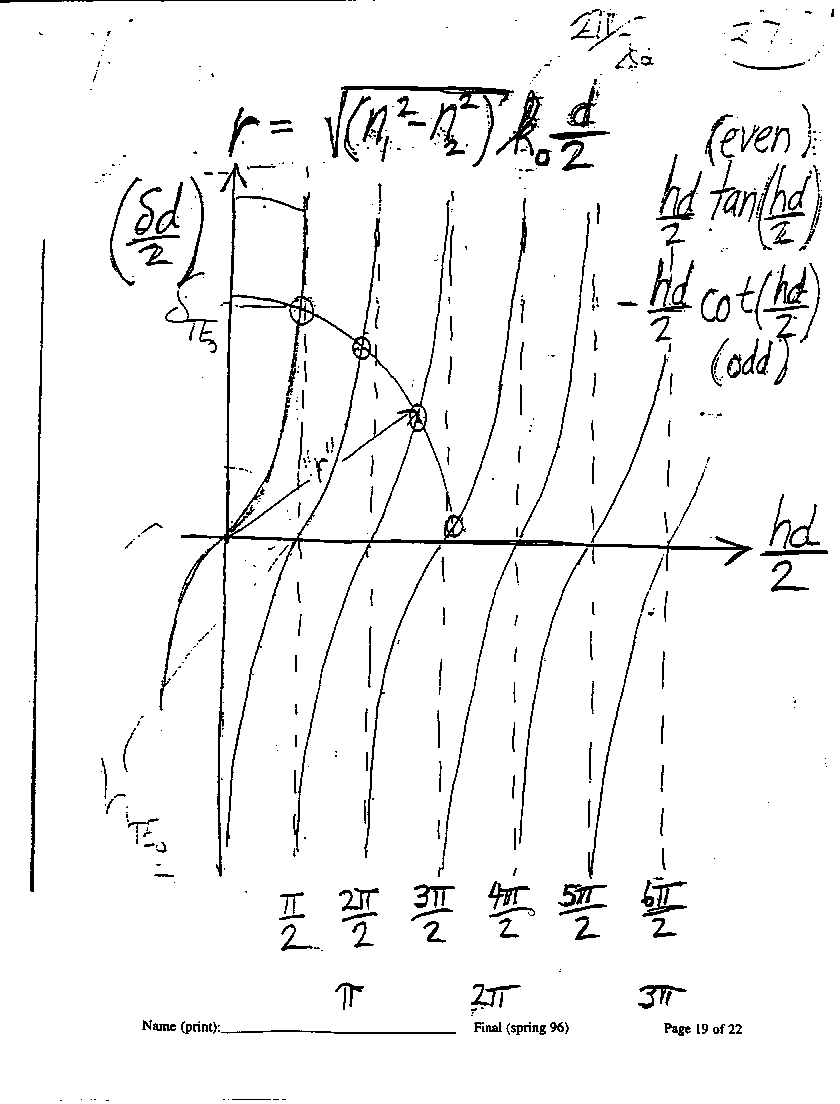 2π/λo
27
r = √(n₁² - n₂²) k₀ d/2
(even)
(δd/2)
hd/2 tan(hd/2)
δ TE₀
- hd/2 cot(hd/2)
(odd)
"r"
hd/2
h TE₀
π/2 2π/2 3π/2 4π/2 5π/2 6π/2
π 2π 3π
Name (print): Final (spring 96) Page 19 of 22